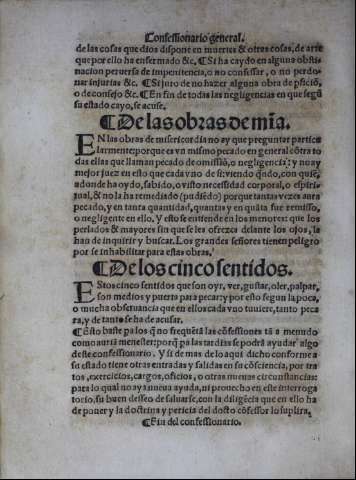 Confessionario general.
de las cosas que dios dispone en muertes & otras cosas, de arte
que por ello ha enfermado &c. ¶ Si ha caydo en alguna obsti
nacion peruersa de impenitencia, o no confessar, o no perdo-
nar injurias &c. ¶ Si juro de no hazer alguna obra de
o de consejo &c. ¶ En fin de todas las negligencias en que segũ
su estado cayo, se acuse.
¶ De las obras de mĩa.
EN las obras de misericordia no ay que preguntar particu
larmente: porque es vn mismo pecado en general cõtra to
das ellas que llaman pecado de omissiõ, o negligencia: y no ay
mejor juez en esto que cada vno de si: viendo quãdo, con quiẽ,
adonde ha oydo, sabido, o visto necessidad corporal, o espiri-
tual, & no la ha remediado (pudiẽdo) porque tantas vezes aura
pecado, y en tanta quantidad, quantas y en quãta fue remisso,
o negligente en ello. Y esto se entiende en los menores: que los
perlados & mayores sin que se les ofrezca delante los ojos, la
han de inquirir y buscar. Los grandes señores tienen peligro
por se inhabilitar para estas obras.
¶ De los cinco sentidos.
EStos cinco sentidos que son oyr, ver, gustar, oler, palpar,
son medios y puerta para pecar: y por esso segun la poca,
o mucha obseruancia que en ellos cada vno tuuiere, tanto pe-
cara, y de tanto se ha de acusar.
¶ Esto baste pa los q̃ no frequẽtã las cõfessiones tã a menudo
como auriã menester: porq̃ pa las tardias se podrã ayudar algo
deste confessionario. Y si de mas de lo aqui dicho conforme a
su estado tiene otras entradas y salidas en su cõsciencia, por tra
tos, exercicios, cargos, oficios, o otras nueuas circunstancias:
para lo qual no ay a nueua ayuda, ni prouecho en este interroga
torio, su buen desseo de saluarse, con la diligẽcia que en ello ha
de poner y la doctrina y pericia del docto cõfessor lo suplira.
¶ Fin del confessionario.